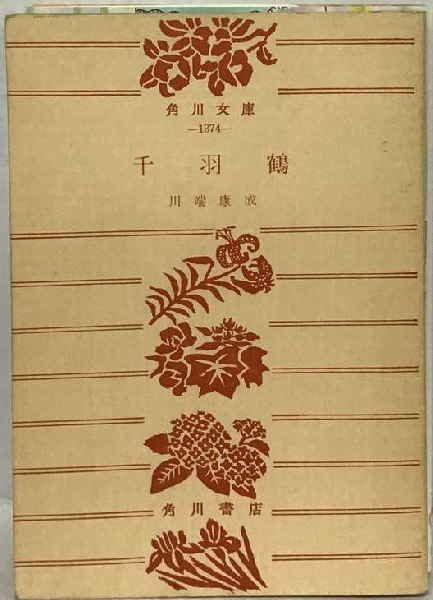 角川文庫
—1374—
千羽鶴
川端康成
角川書店